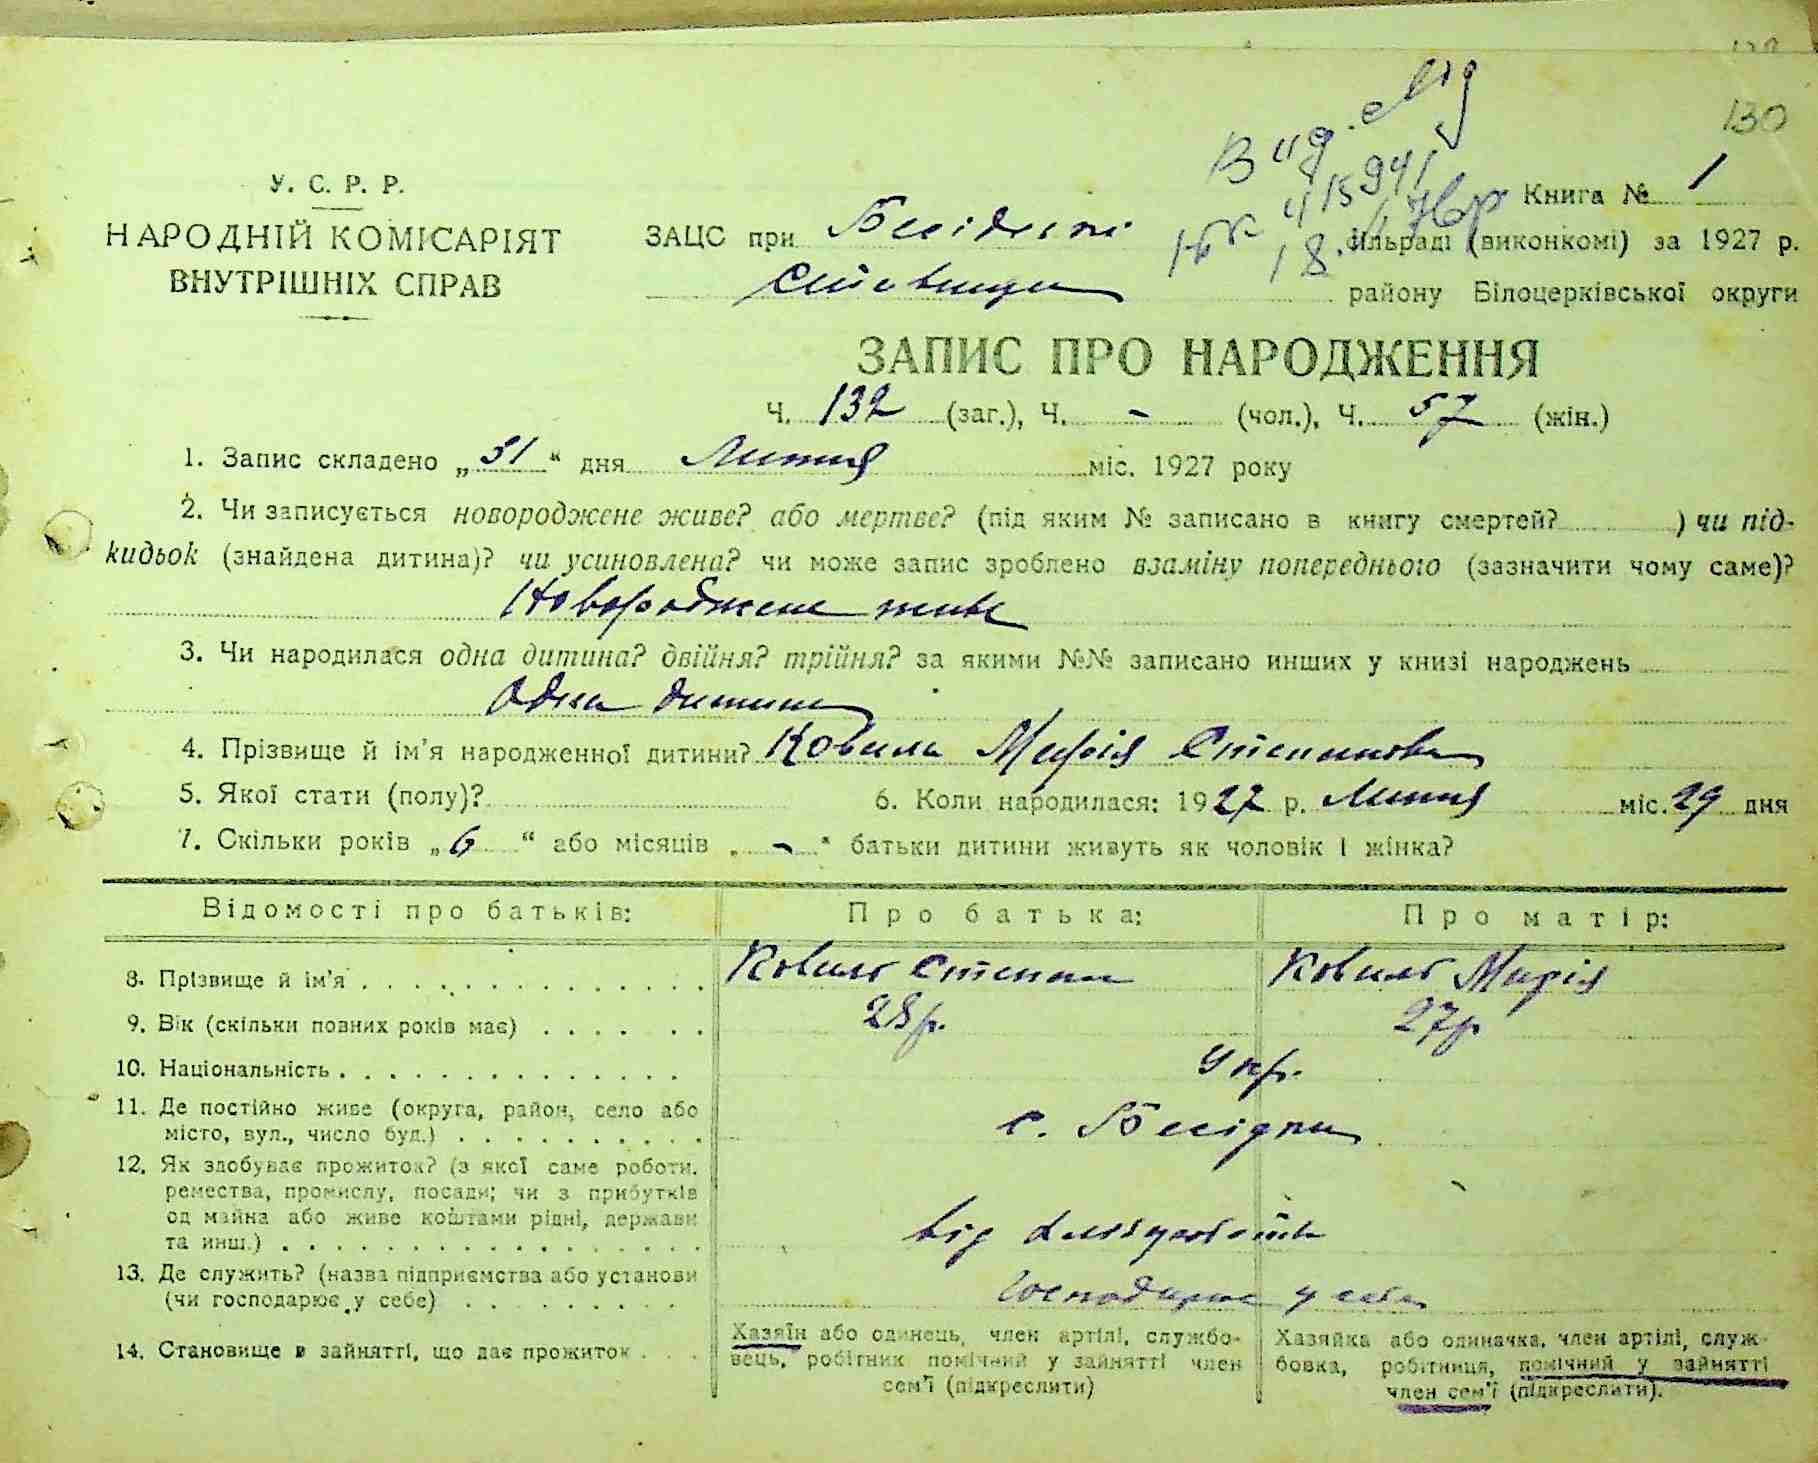 130
У. С. Р. Р.
НАРОДНІЙ КОМІСАРІЯТ
ВНУТРІШНІХ СПРАВ
Книга № 1
ЗАЦС при сільраді (виконкомі) за 1927 р.
району Білоцерківської округи
ЗАПИС ПРО НАРОДЖЕННЯ
Ч. 132 (заг.), Ч. - (чол.), Ч. 57 (жін.)
1. Запис складено „31“ дня Липня міс. 1927 року
2. Чи записується новороджене живе? або мертве? (під яким № записано в книгу смертей? ) чи під-
кидьок (знайдена дитина)? чи усиновлена? чи може запис зроблено взаміну попереднього (зазначити чому саме)?
Новороджене живе
3. Чи народилася одна дитина? двійня? трійня? за якими №№ записано инших у книзі народжень
Одна дитина
4. Прізвище й ім'я народженної дитини? Ковиль Марія Степанова
5. Якої стати (полу)? 6. Коли народилася: 1927 р. Липня міс. 29 дня
7. Скільки років „6“ або місяців „-“ батьки дитини живуть як чоловік і жінка?
Відомості про батьків: Про батька: Про матір:
8. Прізвище й ім'я Ковиль Степан Ковиль Марія
9. Вік (скільки повних років має) 28р. 27р
10. Національність Укр.
11. Де постійно живе (округа, район, село або
місто, вул., число буд.) с. Бесідки
12. Як здобуває прожиток? (з якої саме роботи,
ремества, промислу, посади; чи з прибутків
од майна або живе коштами рідні, держави
та инш.) від
13. Де служить? (назва підприємства або установи
(чи господарює у себе) Господарює у себе
14. Становище в зайнятті, що дає прожиток
Хазяїн або одинець, член артілі, службо-
вець, робітник помічний у зайнятті член
сем'ї (підкреслити)
Хазяйка або одиначка, член артілі, служ-
бовка, робітниця, помічний у зайнятті
член сем'ї (підкреслити).